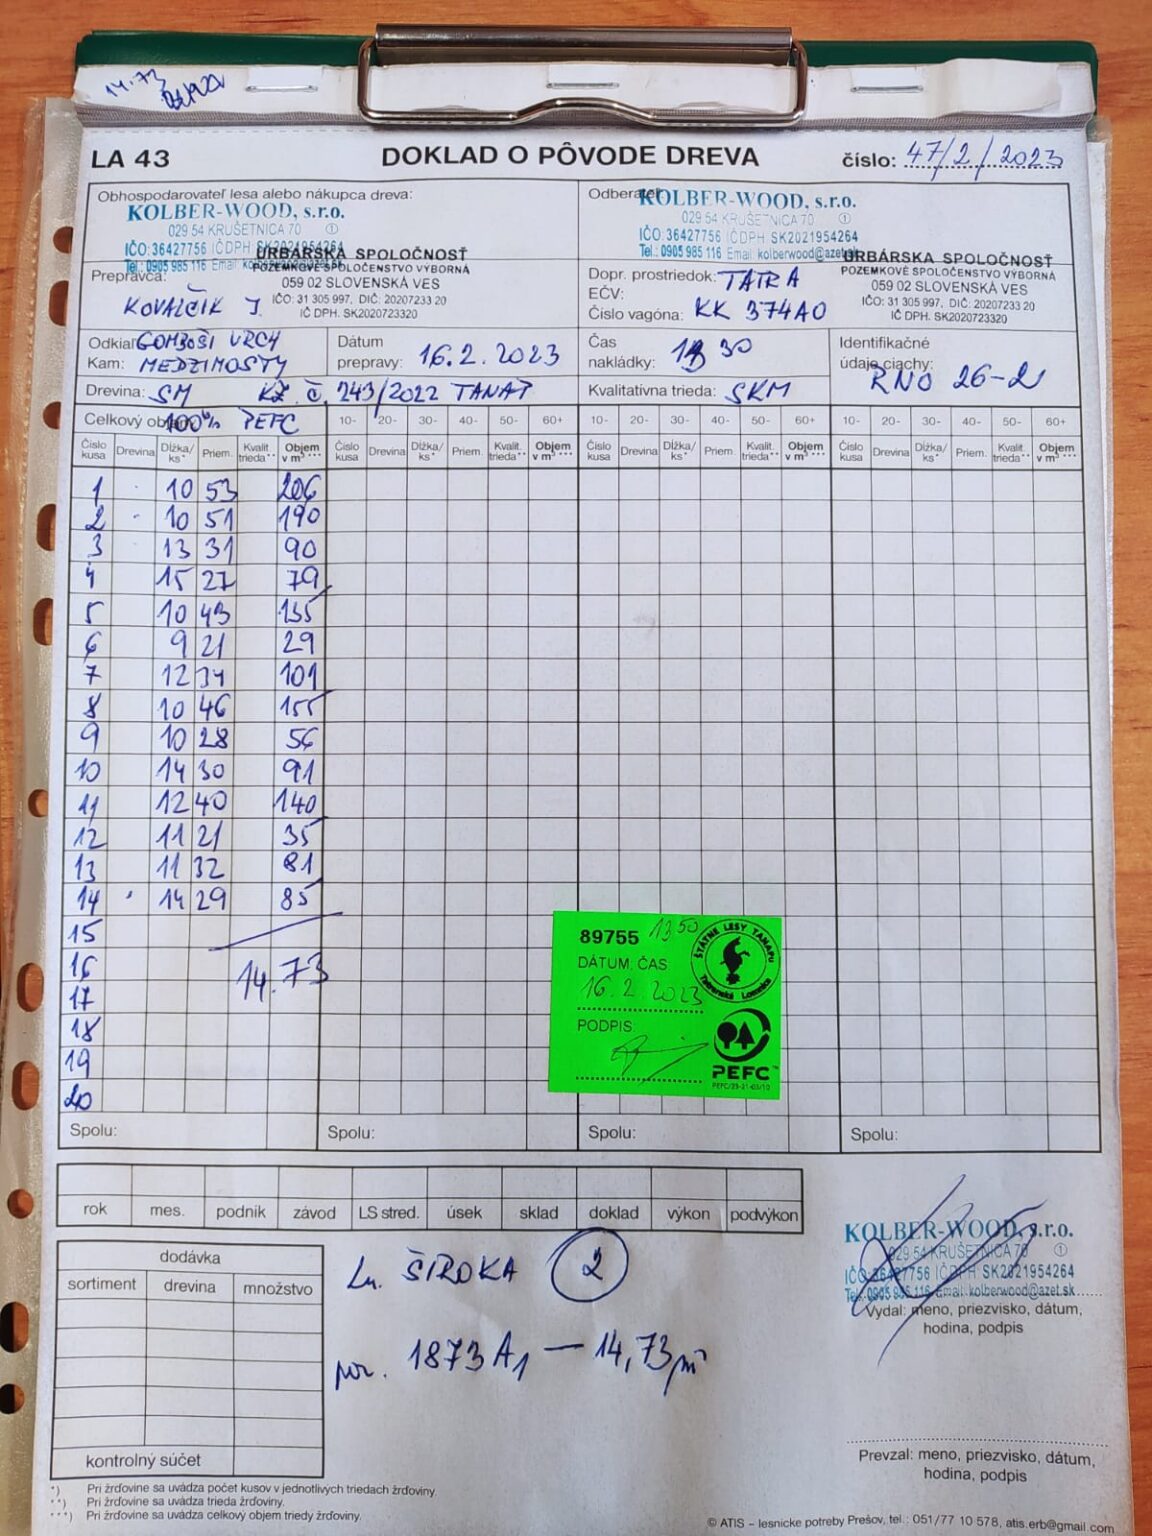 14.73
LA 43
DOKLAD O PÔVODE DREVA
číslo: 47/2/2023
Obhospodarovateľ lesa alebo nákupca dreva:
KOLBER-WOOD, s.r.o.
029 54 KRUŠETNICA 70 ①
IČO:36427756 IČDPH SK2021954264
Tel.: 0905 985 116 Email: kolberwood@azet.sk
URBÁRSKA SPOLOČNOSŤ
POZEMKOVÉ SPOLOČENSTVO VÝBORNÁ
059 02 SLOVENSKÁ VES
IČO: 31 305 997, DIČ: 20207233 20
IČ DPH. SK2020723320
Prepravca:
KOVALČÍK J.
Odberateľ
KOLBER-WOOD, s.r.o.
029 54 KRUŠETNICA 70 ①
IČO:36427756 IČDPH SK2021954264
Tel.: 0905 985 116 Email: kolberwood@azet.sk
URBÁRSKA SPOLOČNOSŤ
POZEMKOVÉ SPOLOČENSTVO VÝBORNÁ
059 02 SLOVENSKÁ VES
IČO: 31 305 997, DIČ: 20207233 20
IČ DPH. SK2020723320
Dopr. prostriedok: TATRA
EČV:
Číslo vagóna: KK 374AO
Odkiaľ GOMBOŠI VRCH
Kam: MEDZIMOSTY
Dátum
prepravy: 16.2.2023
Čas
nakládky: 30
Identifikačné
údaje ciachy:
RNO 26-2
Drevina: SM KZ č. 243/2022 TANAP
Kvalitatívna trieda: SKM
Celkový 100% PEFC
10- 20- 30- 40- 50- 60+ 10- 20- 30- 40- 50- 60+ 10- 20- 30- 40- 50- 60+
Číslo kusa Drevina Dĺžka/ ks* Priem. Kvalit. trieda** Objem v m³ *** Číslo kusa Drevina Dĺžka/ ks* Priem. Kvalit. trieda** Objem v m³ *** Číslo kusa Drevina Dĺžka/ ks* Priem. Kvalit. trieda** Objem v m³ *** Číslo kusa Drevina Dĺžka/ ks* Priem. Kvalit. trieda** Objem v m³ ***
1 10 53 206
2 10 51 190
3 13 31 90
4 15 27 79
5 10 43 135
6 9 21 29
7 12 34 101
8 10 46 155
9 10 28 56
10 14 30 91
11 12 40 140
12 11 21 35
13 11 32 81
14 14 29 85
15
16 14.73
17
18
19
20
89755 13 50
ŠTÁTNE LESY TANAPU
Tatranská Lomnica
DÁTUM, ČAS
16.2.2023
PODPIS:
PEFC™
PEFC/23-21-03/10
Spolu: Spolu: Spolu: Spolu:
rok mes. podnik závod LS stred. úsek sklad doklad výkon podvýkon
dodávka
sortiment drevina množstvo
kontrolný súčet
ŠIROKA 2
por. 1873 A1 — 14,73
KOLBER-WOOD, s.r.o.
029 54 KRUŠETNICA 70 ①
IČO:36427756 IČDPH SK2021954264
Tel.: 0905 985 116 Email: kolberwood@azet.sk
Vydal: meno, priezvisko, dátum,
hodina, podpis
Prevzal: meno, priezvisko, dátum,
hodina, podpis
*) Pri žrďovine sa uvádza počet kusov v jednotlivých triedach žrďoviny.
**) Pri žrďovine sa uvádza trieda žrďoviny.
***) Pri žrďovine sa uvádza celkový objem triedy žrďoviny.
© ATIS – lesnícke potreby Prešov, tel.: 051/77 10 578, atis.erb@gmail.com